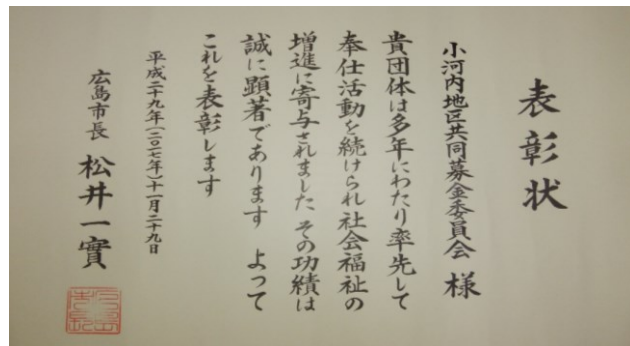 表彰状
小河内地区共同募金委員会 様
貴団体は多年にわたり率先して
奉仕活動を続けられ社会福祉の
増進に寄与されました その功績は
誠に顕著であります よって
これを表彰します
平成二十九年(二〇一七年)十一月二十九日
広島市長 松井一實